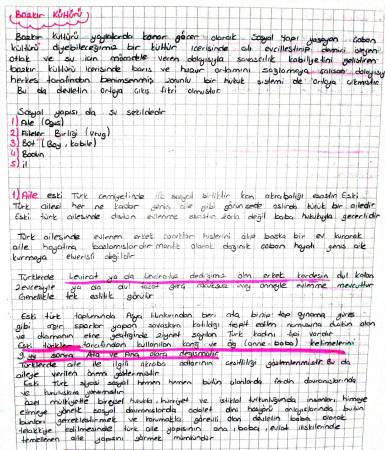 Bozkır Kültürü
Bozkır kültürü yaylalarda konar göçer olarak sosyal yapı yaşayan çoban
kültürü diyebileceğimiz bir kültür içerisinde atı evcilleştirip devamı
otlak ve su için mücadele veren dolayısıyla savaşçılık kabiliyetini geliştiren
bozkır kültürü içerisinde barış ve huzur ortamını sağlamaya çalışan dolayısıyla
herkes tarafından benimsenmiş zorunlu bir hukuk sistemi de ortaya çıkmıştır.
Bu da devletin ortaya çıkış fikri olmuştur
Sosyal yapısı da şu şekildedir
1) Aile (Oguş)
2) Aileler Birliği (Urug)
3) Boy (Bag, kabile)
4) Bodun
5) il
1) Aile eski Türk cemiyetinde ilk sosyal birliktir kan akrabalığı esastır Eski
Türk ailesi her ne kadar geniş aile gibi görünsede aslında
Eski türk ailesinde dıştan evlenme esastır değil baba hukukuyla geçerlidir
Türk ailesinde evlenen erkek çocuklar hislerini alıp başka bir ev kurarak
aile hayatına başlamışlardır mantık olarak dağınık çoban hayatı geniş aile
kurmaya elverişli değildir
Türklerde Levirat ya da dediğimiz ölen erkek kardeşin dul kalan
ya da dul üvey anneyle evlenme mevcuttur
Genellikle tek eşlilik görülür.
Eski türk toplumunda
gibi ağır sporlar yapan savaşlara katıldığı tespit edilen namusuna düşkün olan
ve düşmanın eline geçtiğinde ziynet sayılan Türk kadını tipi vardır
Eski türkler tarafından kullanılan kang ve ög (anne-baba) kelimelerini
sonra Ata ve Ana olarak değişmiştir
Türklerde aile ile ilgili akraba adlarının çeşitliliği gözlemlenmiştir Bu da
aileye verilen önemi göstermektedir
Eski Türk siyasi sosyal hemen hemen bütün alanlarda davranışlarında
ve kuruluşlara yansımıştır
özel mülkiyetle bireysel hukuk, hürriyet ve istiklal tutkunluğunda insanları himaye
etmeye yönelik sosyal davranışlarda adalet dini hoşgörü anlayışlarında bütün
bunları gerçekleştirmek ve korumakla görevli olan devletin baba olarak
telakkiye edilmesinde türk aile yapısının ana, baba, evlat ilişkilerinde
temellenen aile yapısını görmek mümkündür